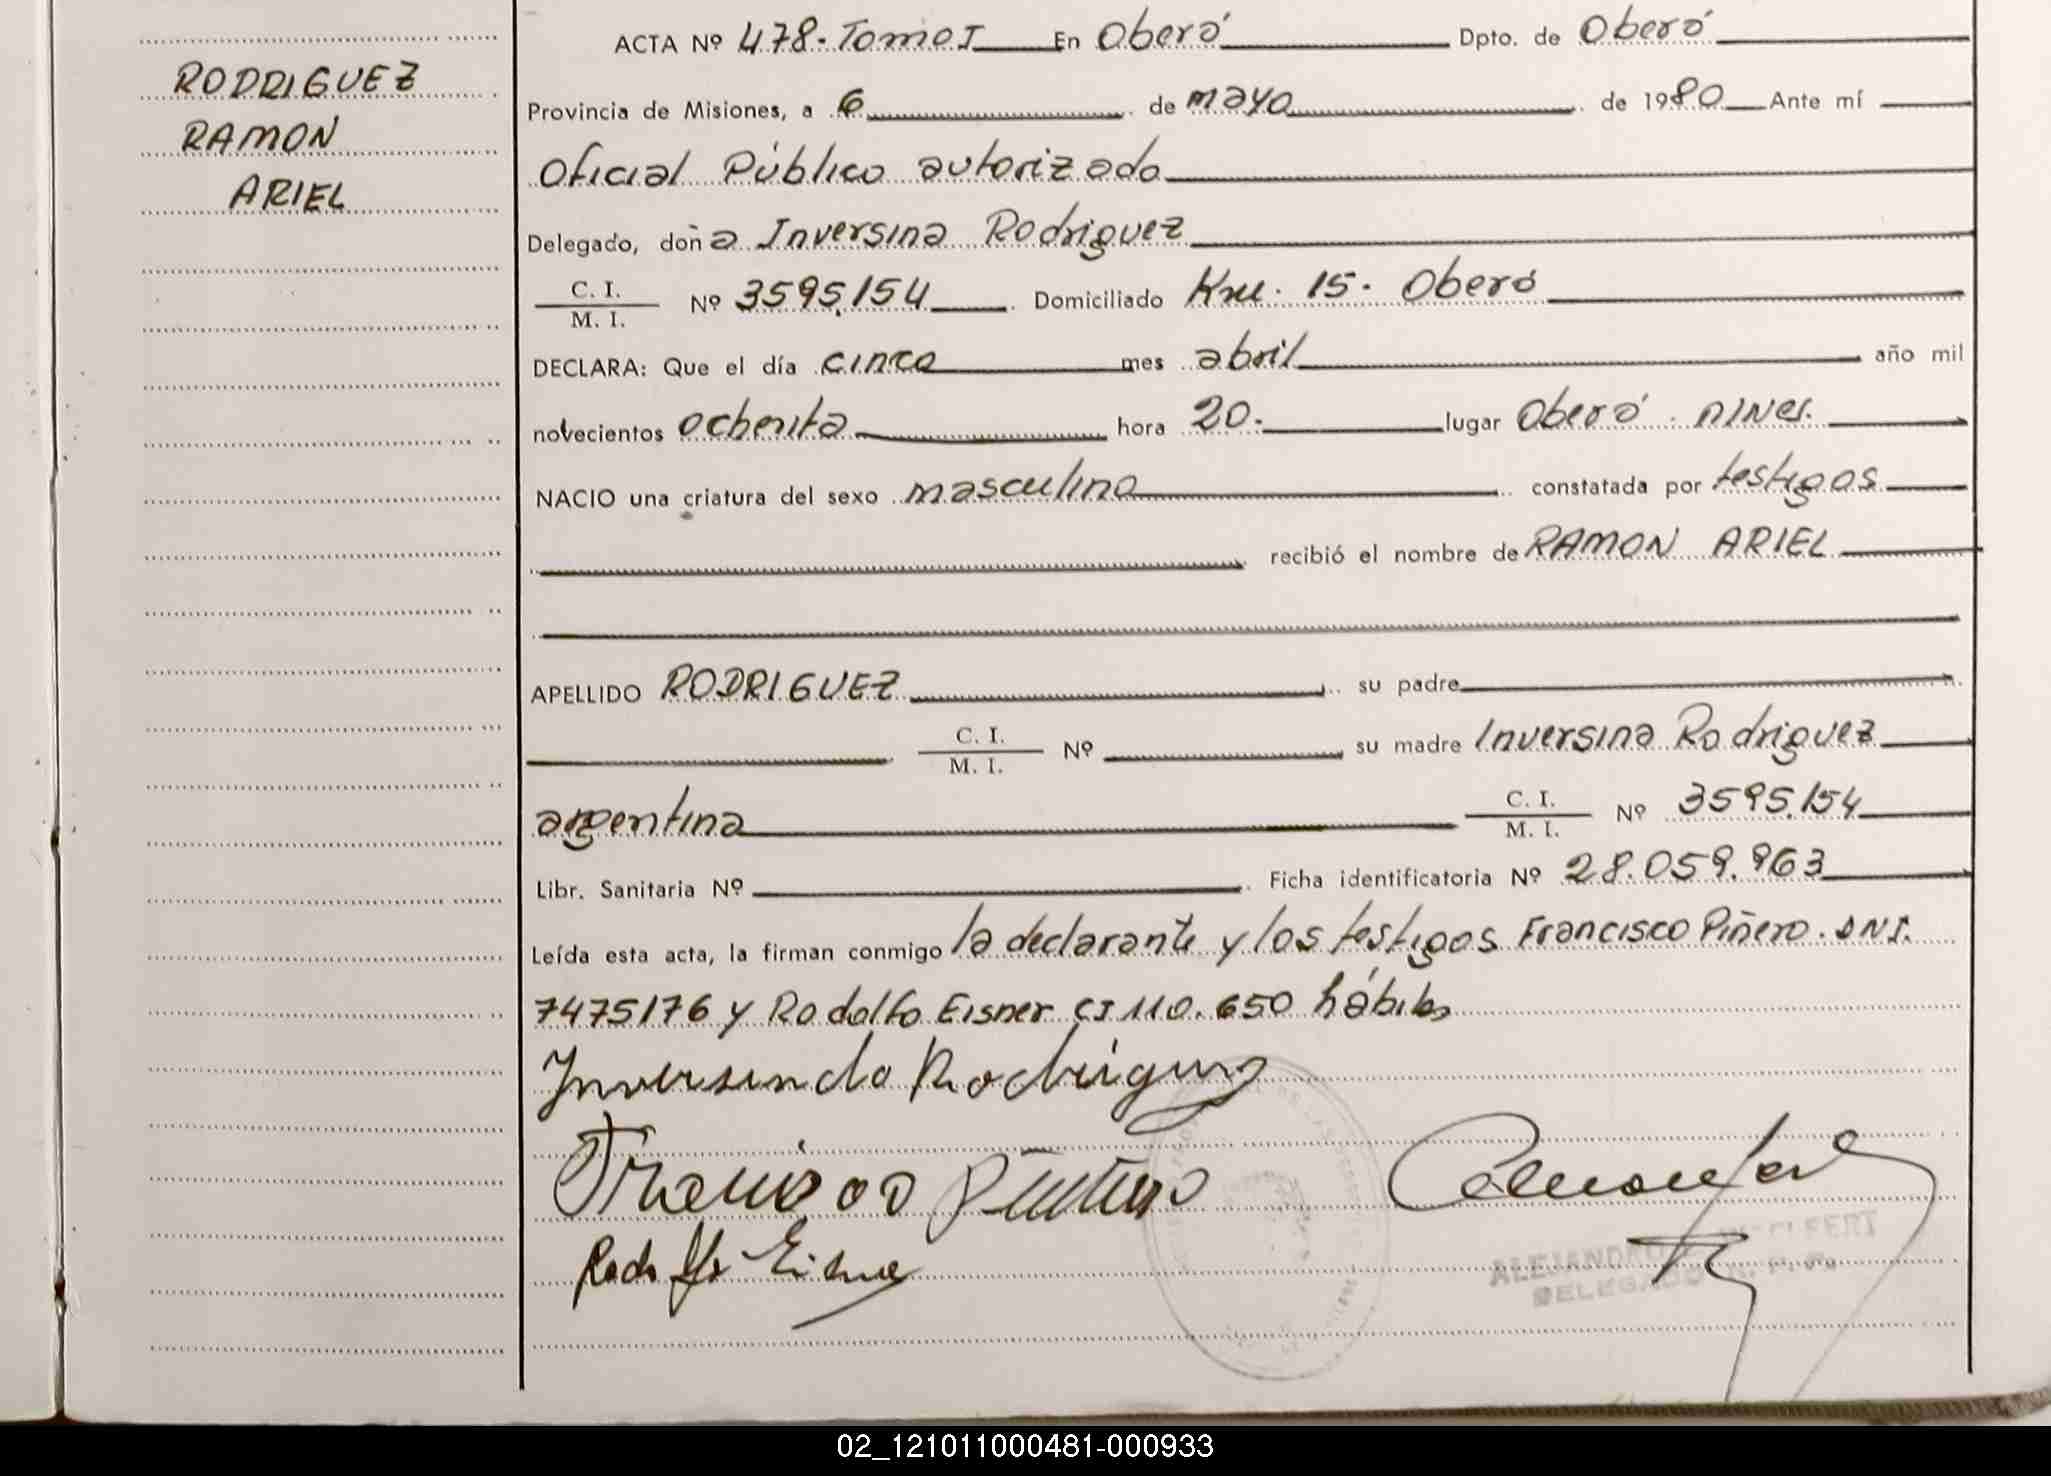 RODRIGUEZ
RAMON
ARIEL
ACTA Nº 478-Tomo I En Oberá Dpto. de Oberá
Provincia de Misiones, a 6 de mayo de 1980 Ante mí
Oficial Público autorizado
Delegado, doña Inversina Rodriguez
C. I.
M. I. Nº 3595.154 Domiciliado Km. 15. Oberá
DECLARA: Que el día cinco mes abril año mil
novecientos ochenta hora 20.- lugar Oberá
NACIO una criatura del sexo masculino constatada por testigos
recibió el nombre de RAMON ARIEL
APELLIDO RODRIGUEZ su padre
C. I.
M. I. Nº su madre Inversina Rodriguez
argentina C. I.
M. I. Nº 3595.154
Libr. Sanitaria Nº Ficha identificatoria Nº 28.059.963
Leída esta acta, la firman conmigo la declarante y los testigos Francisco Piñero. DNI.
7475176 y Rodolfo Eisner CI 110.650 hábiles
Rodolfo Eisner
ALEJANDRO
DELEGADO
02_121011000481-000933